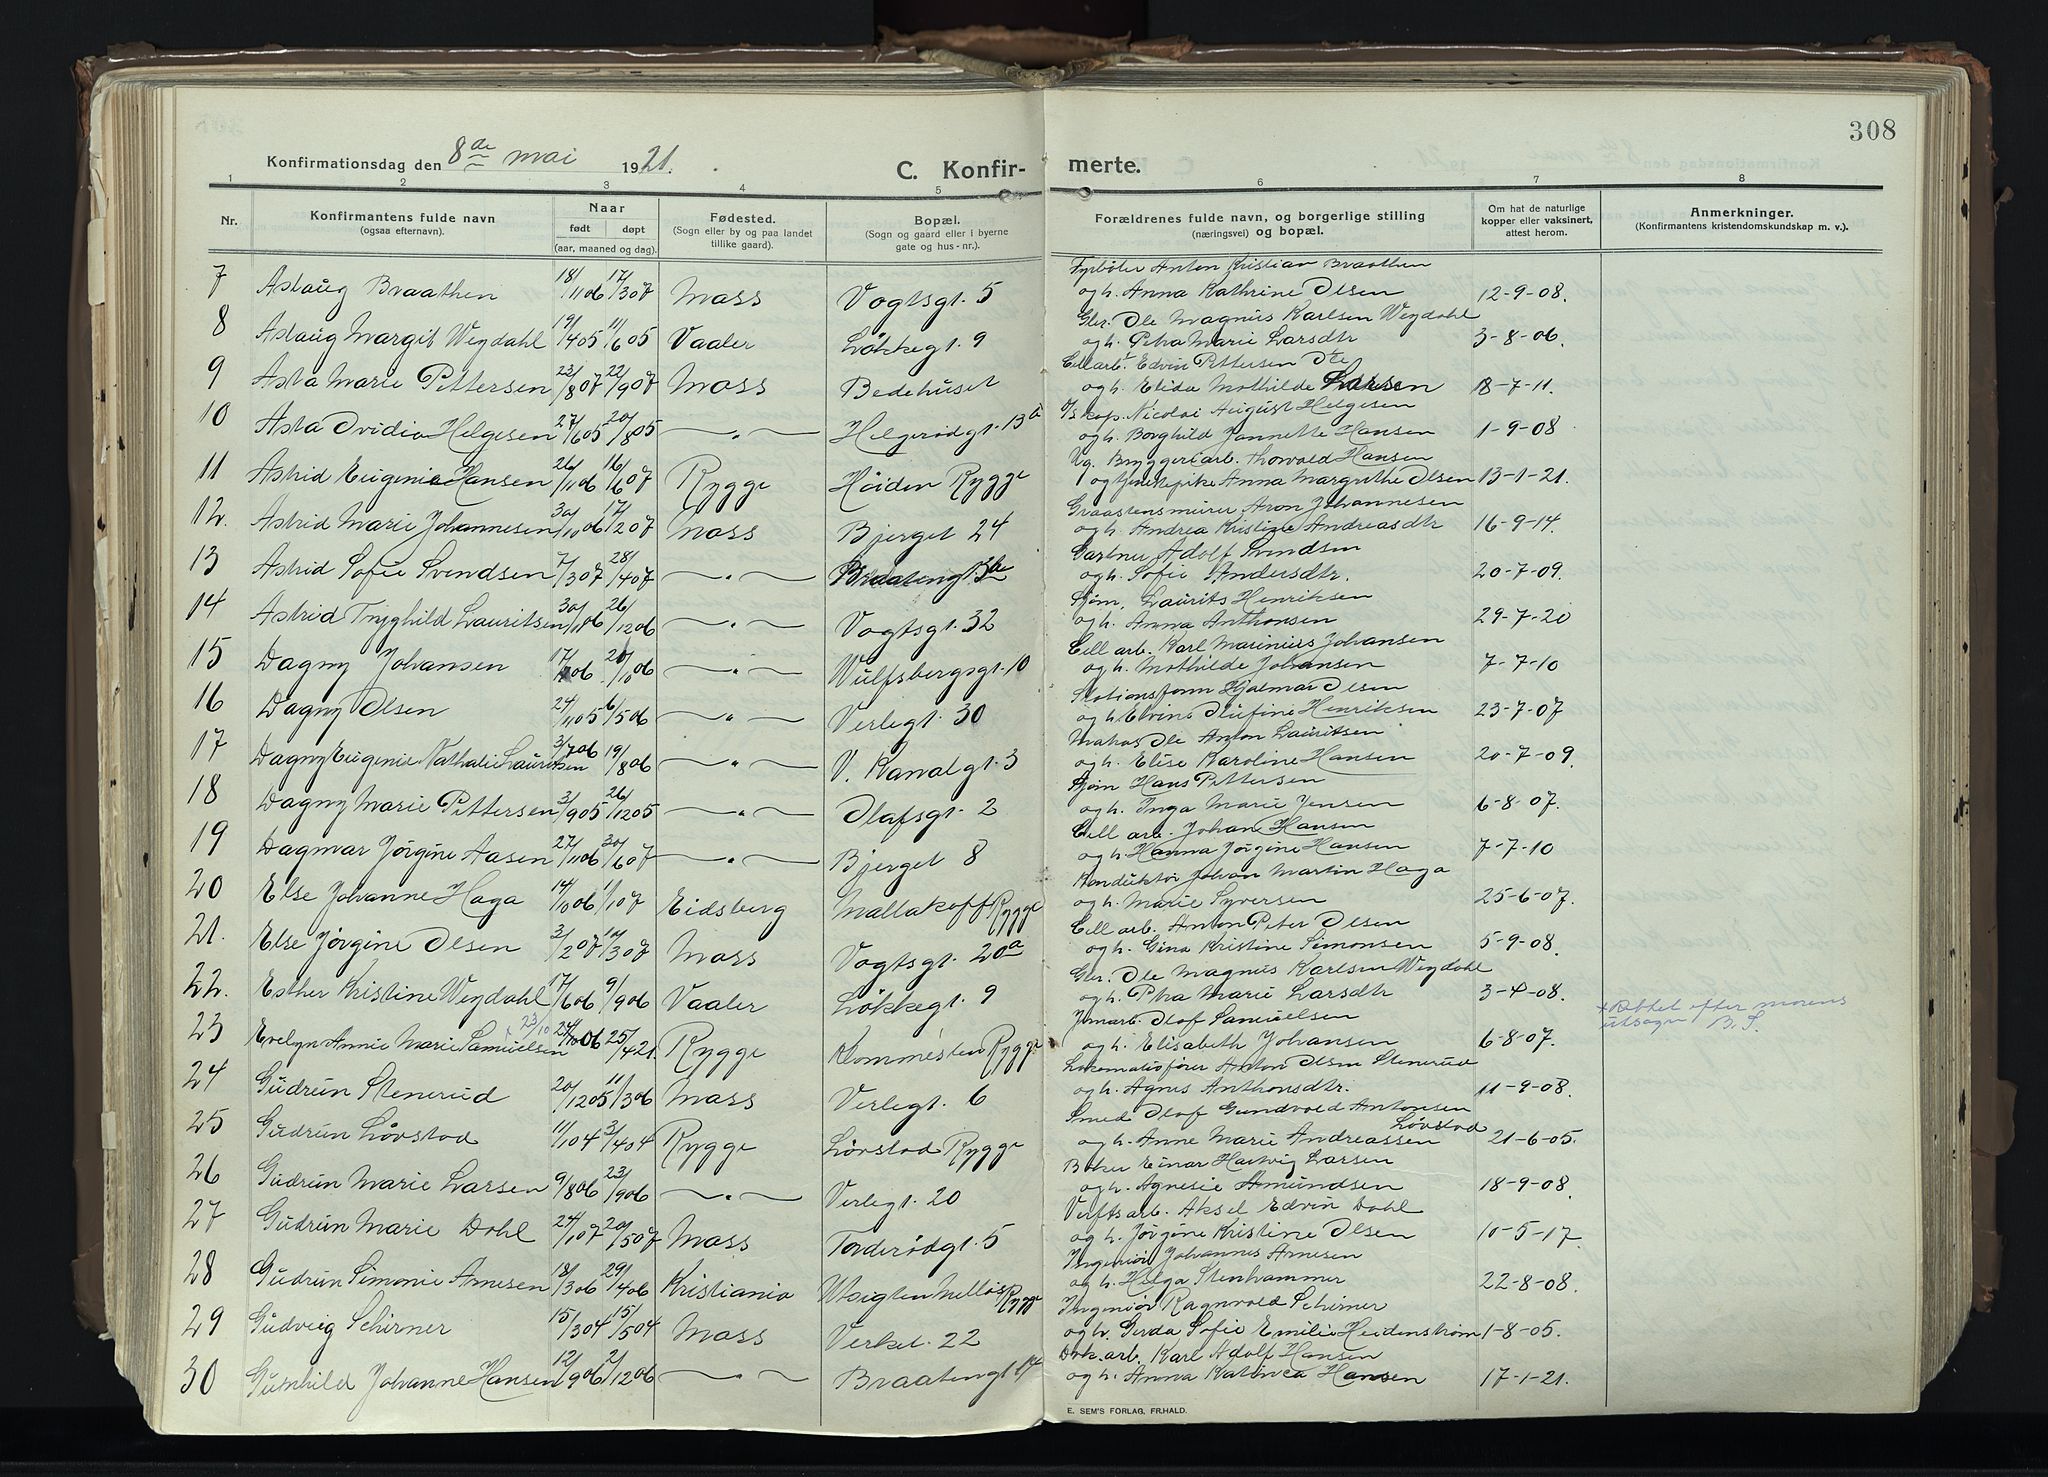 308
Konfirmationsdag den 8de mai 1921.
C. Konfir- merte.
1 2 3 4 5 6 7 8
Nr.
Konfirmantens fulde navn
(ogsaa efternavn).
Naar
født døpt
(aar, maaned og dag).
Fødested.
(Sogn eller by og paa landet
tillike gaard).
Bopæl.
(Sogn og gaard eller i byerne
gate og hus-nr.).
Forældrenes fulde navn, og borgerlige stilling
(næringsvei) og bopæl.
Om hat de naturlige
kopper eller vaksinert,
attest herom.
Anmerkninger.
(Konfirmantens kristendomskundskap m. v.).
7 Aslaug Braathen 18/11 06 17/3 07 Moss Vogtsgt. 5 Fyrbøter Anton Kristian Braathen
og h. Anna Kathrine Olsen 12-9-08.
8 Aslaug Margit Wegdahl 19/4 05 11/6 05 Vaaler Løkkegt. 9 Gbr. Ole Magnus Karlsen Wegdahl
og h. Petra Marie Larsdtr 3-8-06.
9 Asta Marie Pettersen 23/8 07 22/9 07 Moss Bedehuset Cell arb. Edvin Pettersen
og h. Elida Mathilde Larsen 18-7-11.
10 Asta Ovidia Helgesen 27/6 05 20/8 05 —"— Helgerødgt. 13b Nicolai August Helgesen
og h. Borghild Jannette Hansen 1-9-08
11 Astrid Eugenie Hansen 26/11 06 16/6 07 Rygge Høiden Rygge Ug. Bryggeriarb. Thorvald Hansen
og tjenestpike Anna Margrethe Olsen 13-1-21.
12. Astrid Marie Johannesen 30/10 06 17/2 07 Moss Bjerget 24 Graastensmurer Aron Johannesen
og h. Andrea Kristine Andreasdtr 16-9-14.
13 Astrid Sofie Svendsen 7/3 07 28/4 07 —"— Braatengt 13 Gartner Adolf Svendsen
og h. Sofie Andersdtr. 20-7-09.
14 Astrid Tryghild Lauritsen 30/11 06 26/12 06 —"— Vogtsgt. 32 Sjøm. Laurits Henriksen
og h. Anna Anthonsen 29-7-20
15 Dagny Johansen 17/ 06 20/10 06 —"— Wulfsbergsgt. 10 Cell arb. Karl Marinius Johansen
og h. Mathilde Johansen 7-7-10
16 Dagny Olsen 24/11 05 6/5 06 —"— Verlegt. 30 Stationsform Hjalmar Olsen
og h. Elvine Olufine Henriksen 23-7-07
17 Dagny Eugenie Nathalie Lauritsen 3/7 06 19/8 06 —"— V. Kanalgt. 3 Ole Anton Lauritsen
og h. Elise Karoline Hansen 20-7-09.
18 Dagny Marie Pettersen 3/9 05 26/12 05 —"— Olafsgt. 2 Sjøm Hans Pettersen
og h. Inga Marie Jensen 6-8-07.
19 Dagmar Jørgine Aasen 27/11 06 30/6 07 —"— Bjerget 8 Cell arb. Johan Hansen
og h. Hanna Jørgine Hansen 7-7-10
20 Else Johanne Haga 14/10 06 1/1 07 Eidsberg Mallakoff Rygge Konduktør Johan Martin Haga
og h. Marie Syversen 25-6-07.
21. Else Jørgine Olsen 3/2 07 10/3 07 Moss Vogtsgt. 20a Cell arb. Anton Peter Olsen
og h. Gina Kristine Simonsen 5-9-08.
22. Esther Kristine Wegdahl 17/6 06 9/9 06 Vaaler Løkkegt. 9 Gbr. Ole Magnus Karlsen Wegdahl
og h. Petra Marie Larsdtr 3-4-08.
23 Evelyn Annie Marie Samuelsen x 23/10 24/10 06 25/4 21 Rygge Klommesten Rygge Jernarb. Olof Samuelsen
og h. Elisabeth Johansen 6-8-07. + Rettet efter morens
utsagn B. S.
24 Gudrun Stenerud 20/12 05 11/3 06 Moss Verlegt. 6 Lokomotivfører Anton Olsen Stenerud
og h. Agnes Anthonsdtr. 11-9-08.
25 Gudrun Løvstad 11/10 4 3/4 04 Rygge Løvstad Rygge Smed Olof Gundvold Antonsen
Løvstad
og h. Anne Marie Andreassen 21-6-05.
26 Gudrun Marie Larsen 9/8 06 23/9 06 —"— Verlegt. 20 Baker Einar Hartvig Larsen
og h. Agnesie Amundsen 18-9-08.
27 Gudrun Marie Dahl 24/1 07 20/5 07 Moss Tonderødgt. 5 Verftsarb. Aksel Edvin Dahl
og h. Jørgine Kristine Olsen 10-5-17.
28 Gudrun Simonie Arnesen 18/3 06 29/4 06 Kristiania Utsigten Melløs Rygge Ingeniør Johannes Arnesen
og h. Helga Stenhammer 22-8-08.
29 Gudveig Schirmer 15/3 04 15/5 04 Moss Verket. 22 Ingeniør Ragnvald Schirmer
og h. Gerda Sofie Emilie Heidenstrøm 1-8-05.
30 Gunhild Johanne Hansen 12/9 06 2/12 06 —"— Braatengt 14 Dok. arb. Karl Adolf Hansen
og h. Anna Katinka Hansen 17-1-21.
E. SEM'S FORLAG, FR.HALD.